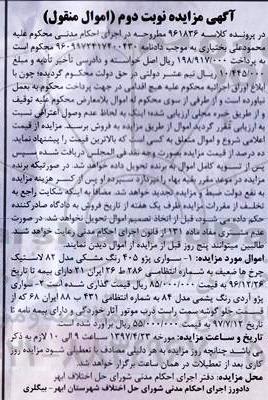 آگهی مزایده نوبت دوم (اموال منقول)
در پرونده کلاسه ۹۶۱۸۳۶ مطروحه در اجرای احکام مدنی محکوم علیه
محمودعلی بختیاری به موجب دادنامه ۹۶۰۹۹۷۲۴۱۷۴۰۰۴۳۰ محکوم است
به پرداخت ۱۹۸/۹۱۷/۰۰۰ ریال اصل خواسته و دادرسی تأخیر تأدیه و مبلغ
۱۰/۴۴۵/۰۰۰ ریال نیم عشر دولتی در حق دولت محکوم گردیده؛ چون با
ابلاغ اوراق اجرائیه محکوم علیه هیچ اقدامی در جهت پرداخت محکوم به بعمل
نیاورده است و از طرفی از سوی محکوم له اموال بلامعارض محکوم علیه توقیف
و از طریق خبره محلی ارزیابی شده؛ اینک به لحاظ عدم وصول اعتراض نسبت
به ارزیابی مقرر گردید اموال از طریق مزایده به فروش برسد. مزایده از قیمت
اعلامی شروع و اموال متعلق به کسی است که بالاترین قیمت را پیشنهاد نماید.
ده درصد از قیمت مزایده بصورت وجه نقد فی المجلس دریافت شده
پس از تسویه کامل اموال به برنده تحویل داده خواهد شد. در صورتیکه برنده
مزایده در موعد مقرر بقیه بهاء را نپردازد سپرده او پس از کسر هزینه مزایده
به نفع دولت ضبط و مزایده تجدید خواهد شد. مضافا به اینکه شکایت راجع به
تخلف از مقررات مزایده ظرف یک هفته از تاریخ فروش به دادگاه صادرکننده
حکم داده می‌شود، قبل از اتخاذ تصمیم اموال تحویل نخواهد شد. در صورت
عدم مشتری مفاد ماده ۱۳۱ از قانون اجرای احکام مدنی رعایت خواهد شد.
طالبین میتوانند پنج روز قبل از مزایده از اموال دیدن نمایند.
اموال مورد مزایده: ۱- سواری پژو ۴۰۵ رنگ مشکی مدل ۸۲ لاستیک
چرخ ها ضعیف به شماره انتظامی ۲۸۶ ط ۲۶ ایران ۲۱ دارای بیمه تا تاریخ
۹۶/۱۲/۲۶ به قیمت ۸۵/۰۰۰/۰۰۰ ریال قیمت گذاری شده است ۲- سواری
پژو آردی رنگ یشمی مدل ۸۴ به شماره انتظامی ۴۳۱ ب ۸۸ ایران ۶۸ که از
قسمت جلو گوشه سمت راست درب موتور آثار خوردگی و دارای بیمه نامه تا
تاریخ ۹۷/۷/۱۲ به قیمت ۵۵/۰۰۰/۰۰۰ ریال برآورد شده است.
تاریخ و ساعت مزایده: مورخه ۱۳۹۷/۴/۲۳ ساعت ۹ الی ۱۰ لازم به ذکر
می باشد چنانچه روز مزایده به هر دلیلی مصادف با تعطیلی شود مزایده روز
کاری بعد از تعطیلات در همان ساعت برگزار خواهد شد.
محل مزایده: دفتر اجرای احکام مدنی شورای حل اختلاف ابهر.
دادورز اجرای احکام مدنی شورای حل اختلاف شهرستان ابهر- بیگلری